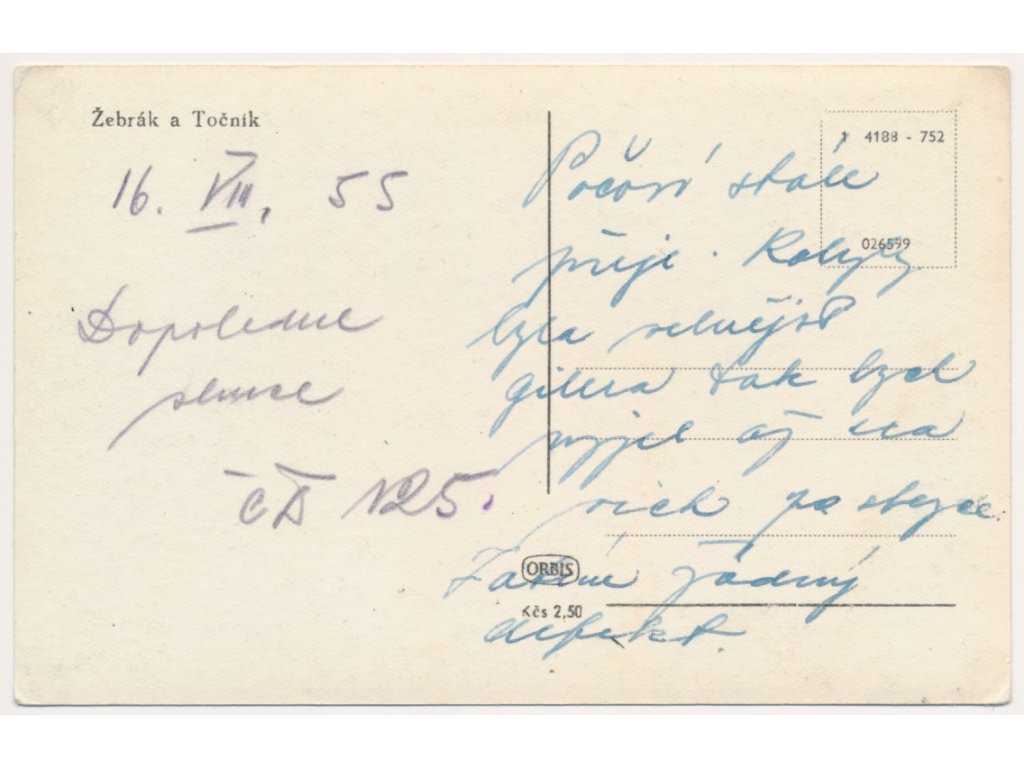 Žebrák a Točník
16. VIII. 55
Dopoledne
slunce
ČD 125.
1 4188 - 752
026599
Počasí stále
přeje.
byla silnější
guma tak bych
vyjel až na
vrch po stezce.
Zatím žádný
defekt.
ORBIS
Kčs 2,50